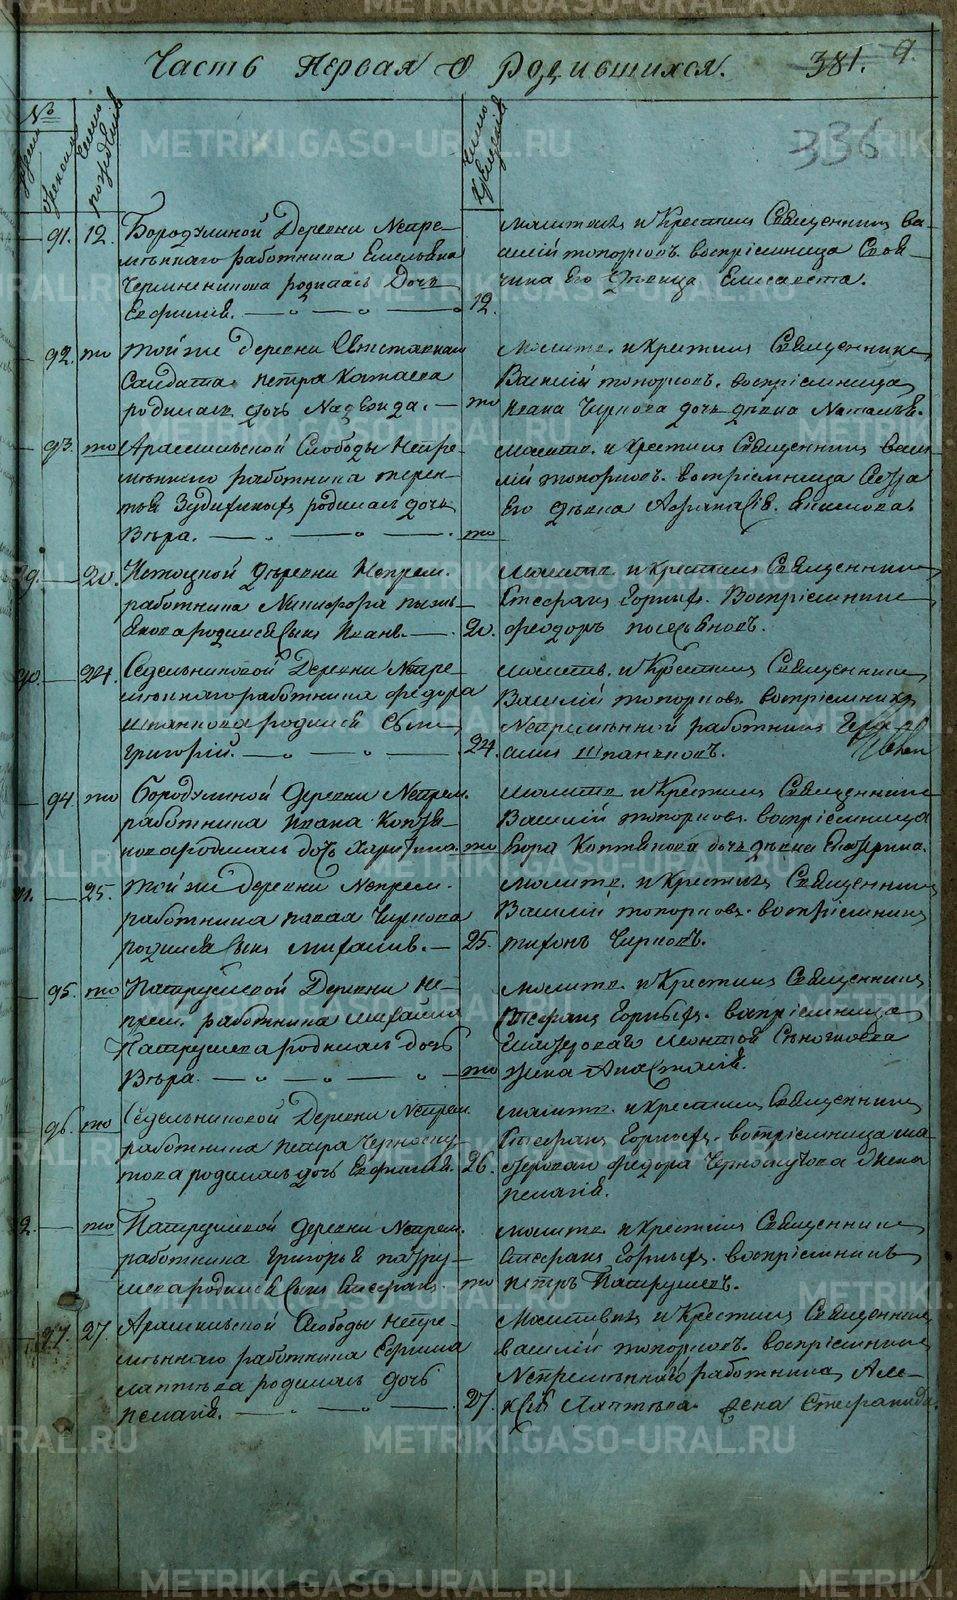 Часть Первая о Родившихся. 381. 9.
336
№
Число рождения
Число крещения
91. 12. Бородулиной Деревни Непре-
меннаго работника Емельяна
родилась Дочь
Евфимія.
Молитвов. и Крестилъ Священникъ Ва-
силій топорковъ. воспріемница
Его девица Елисавета.
12.
92. то Той же деревни отставнаго
Салдата Петра
родилась дочь Надежда.
Молитв. и Крестилъ Священникъ
Василій топорковъ. воспріемница
то Ивана Чернова дочь девка Наталья.
93. то Арамильской Слободы Непре-
меннаго работника терен-
тья родилась дочь
Вера.
Молитв. и крестилъ Священникъ васи-
лій топорковъ. воспріемница
Его девка
то
89. 20. деревни Непрем.
работника Никифора
родился Сынъ Иванъ.
Молитв. и крестилъ Священникъ
Стефанъ Горныхъ. Воспріемникъ
20. Феодоръ
90. 24. Седельниковой Деревни Непре-
меннаго работника Федора
Шпанькова родился Сынъ
Григорій.
Молитв. и Крестилъ Священникъ
Василій топорковъ воспріемникъ
Непременный работникъ
24. Шпаньковъ.
94. то Бородулиной Деревни Непрем.
работника Ивана Коптя-
кова родилась дочь Харитина.
Молитв. и Крестилъ Священникъ
Василій топорковъ. воспріемница
то Коптякова дочь девка Екатерина.
91. 25. Той же деревни Непрем.
работника Чернова
родился Сынъ Михаилъ.
Молитв. и Крестилъ Священникъ
Василій топорковъ. воспріемникъ
25. тихонъ Черновъ.
95. то Патрушевой Деревни Не-
прем. работника Михайла
Патрушева родилась дочь
Вера.
Молитв. и Крестилъ Священникъ
Стефанъ Горныхъ. воспріемница
то жена Анастасія.
96. то Седельниковой Деревни Непрем.
работника Петра Черноску-
това родилась дочь Евфимія.
Молитв. и крестилъ Священникъ
Стефанъ Горныхъ. воспріемница ма-
26. стероваго Федора Черноскутова жена
Пелагія.
92. то Патрушевой деревни Непрем.
работника Григорья Патру-
шева родился Сынъ Стефанъ.
Молитв. и крестилъ Священникъ
Стефанъ Горныхъ. воспріемникъ
то Петръ Патрушевъ.
97. 27. Арамильской Слободы Непре-
меннаго работника
лаптева родилась дочь
Пелагія.
Молитвов. и Крестилъ Священникъ
василій топорковъ. воспріемница
Непременнаго работника Але-
27. ксея Лаптева жена Стефанида.